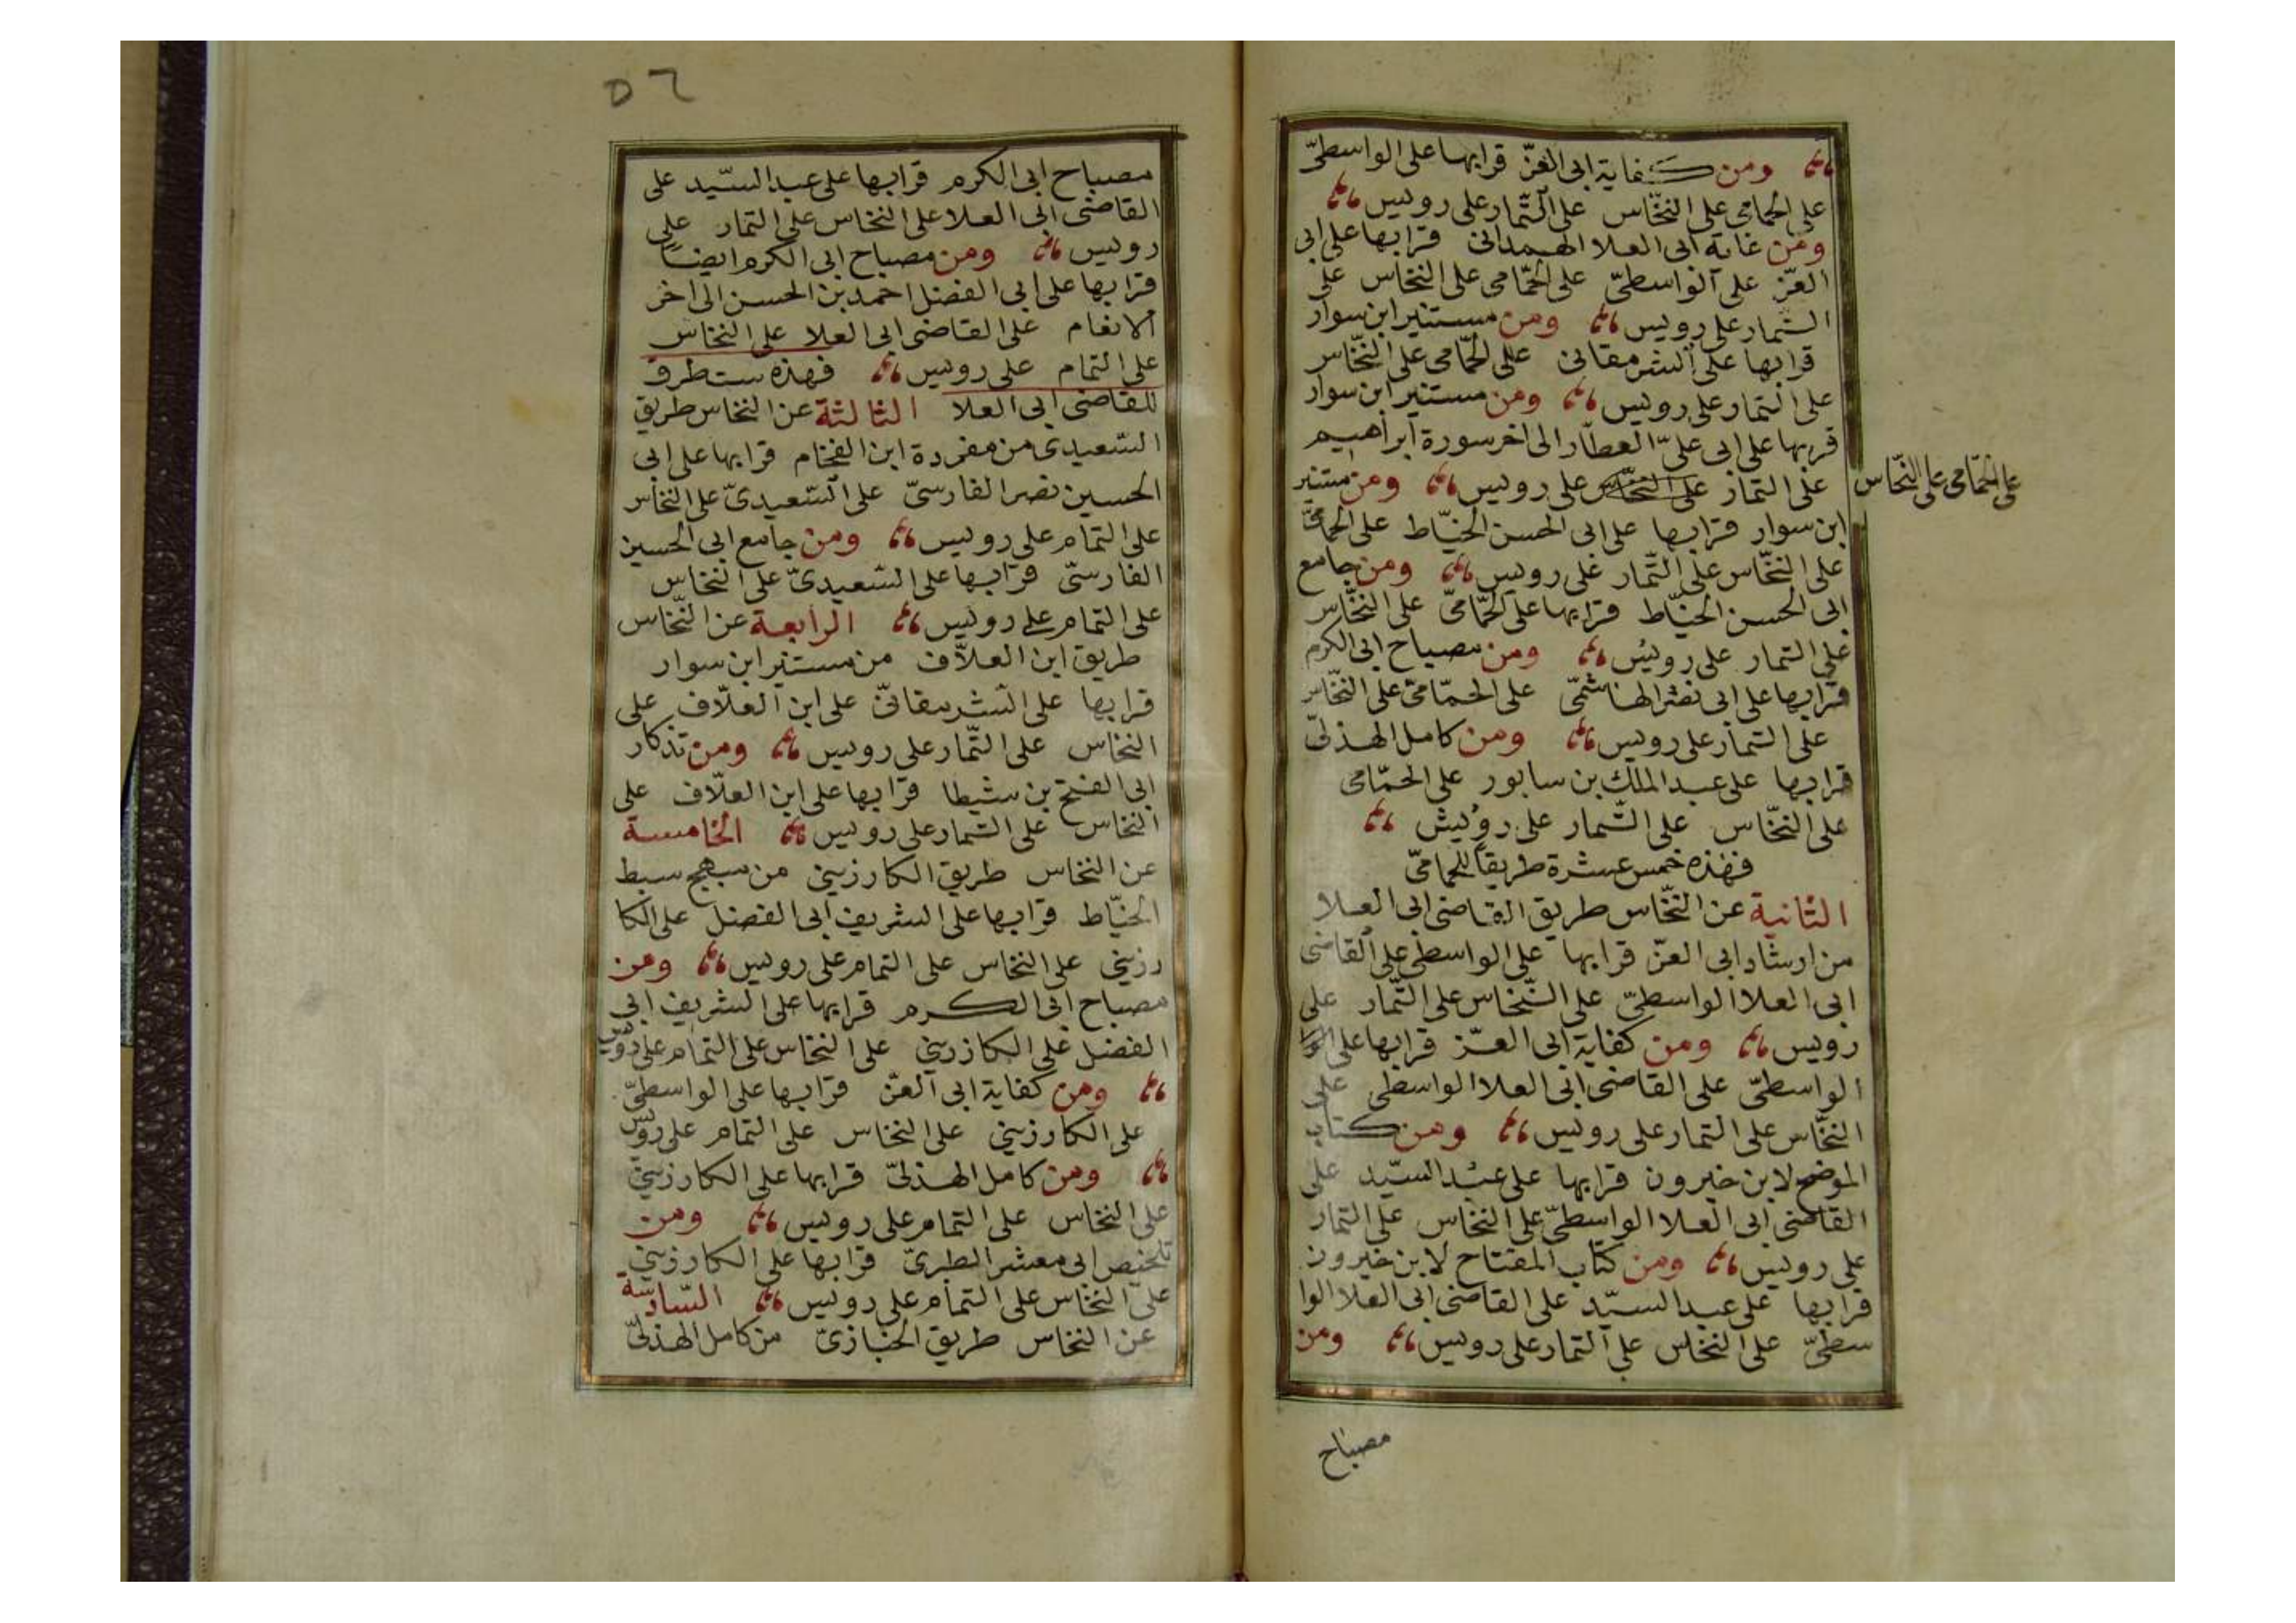 ومن كفاية ابى العزّ قرا بها على الواسطىّ
على الحمامى على النخّاس على التّمار على رويس
ومن غاية ابى العلا الهمدانى قرا بها على ابى
العزّ على الواسطىّ على الحمّامى على النخاس على
التمار على رويس ومن مستنير ابن سوار
قرا بها على الشرمقانى على الحمّامى على النخّاس
على التمار على رويس ومن مستنير ابن سوار
قربها على ابى علىّ العطّار الى اخر سورة ابراهيم
على التمار على النخّاس على رويس ومن مستنير
على الحمّامى على النخّاس
ابن سوار قرا بها على ابى الحسن الخيّاط على الحمامىّ
على النخّاس على التّمار على رويس ومن جامع
ابى الحسن الخيّاط قرا بها على الحمّامىّ على النخّاس
على التمار على رويس ومن مصباح ابى الكرم
قرا بها على ابى نصر الهاشمىّ على الحمّامىّ على النخّاس
على التمار على رويس ومن كامل الهذلىّ
قرا بها على عبد الملك بن سابور على الحمّامى
على النخّاس على التّمار على رويس
فهذه خمس عشرة طريقا للحمامىّ
الثانية عن النخّاس طريق القاضى ابى العلا
من ارشاد ابى العزّ قرا بها على الواسطى على القاضى
ابى العلا الواسطىّ على النّخاس على التّمار على
رويس ومن كفاية ابى العزّ قرا بها على الوا
الواسطىّ على القاضى ابى العلا الواسطى على
النخّاس على التمار على رويس ومن كتاب
الموضح لابن خيرون قرا بها على عبد السيّد على
القاضى ابى العلا الواسطىّ على النخاس على التمار
على رويس ومن كتاب المفتاح لابن خيرون
قرا بها على عبد السيّد على القاضى ابى العلا الوا
سطىّ على النخاس على التمار على رويس ومن
مصباح
٥٢
مصباح ابى الكرم قرا بها على عبد السيّد على
القاضى ابى العلا على النخاس على التمار على
رويس ومن مصباح ابى الكرم ايضاً
قرا بها على ابى الفضل احمد بن الحسن الى اخر
الانعام على القاضى ابى العلا على النخاس
على التمام على رويس فهذه ست طرق
للقاضى ابى العلا الثالثة عن النخاس طريق
السّعيدى من مفردة ابن الفحّام قرا بها على ابى
الحسين نصر الفارسىّ على السّعيدىّ على النخاس
على التمام على رويس ومن جامع ابى الحسين
الفارسىّ قرا بها على السّعيدىّ على النخاس
على التمام على رويس الرابعة عن النّخاس
طريق ابن العلاّف من مستنير ابن سوار
قرا بها على الشرمقانىّ على ابن العلاّف على
النخاس على التّمار على رويس ومن تذكار
ابى الفتح بن شيطا قرا بها على ابن العلاّف على
النخاس على التمار على رويس الخامسة
عن النخاس طريق الكارزينى من مبهج سبط
الخيّاط قرا بها على الشريف ابى الفضل على الكا
رزينى على النخاس على التمام على رويس ومن
مصباح ابى الكرم قرا بها على الشريف ابى
الفضل على الكارزينى على النخاس على التمام على رويس
ومن كفاية ابى العزّ قرا بها على الواسطىّ
على الكارزينى على النخاس على التمام على رويس
ومن كامل الهذلىّ قرا بها على الكارزينى
على النخاس على التمام على رويس ومن
تلخيص ابى معشر الطبرىّ قرا بها على الكارزينى
على النخّاس على التمام على رويس السّادسة
عن النخاس طريق الخبازىّ من كامل الهذلىّ